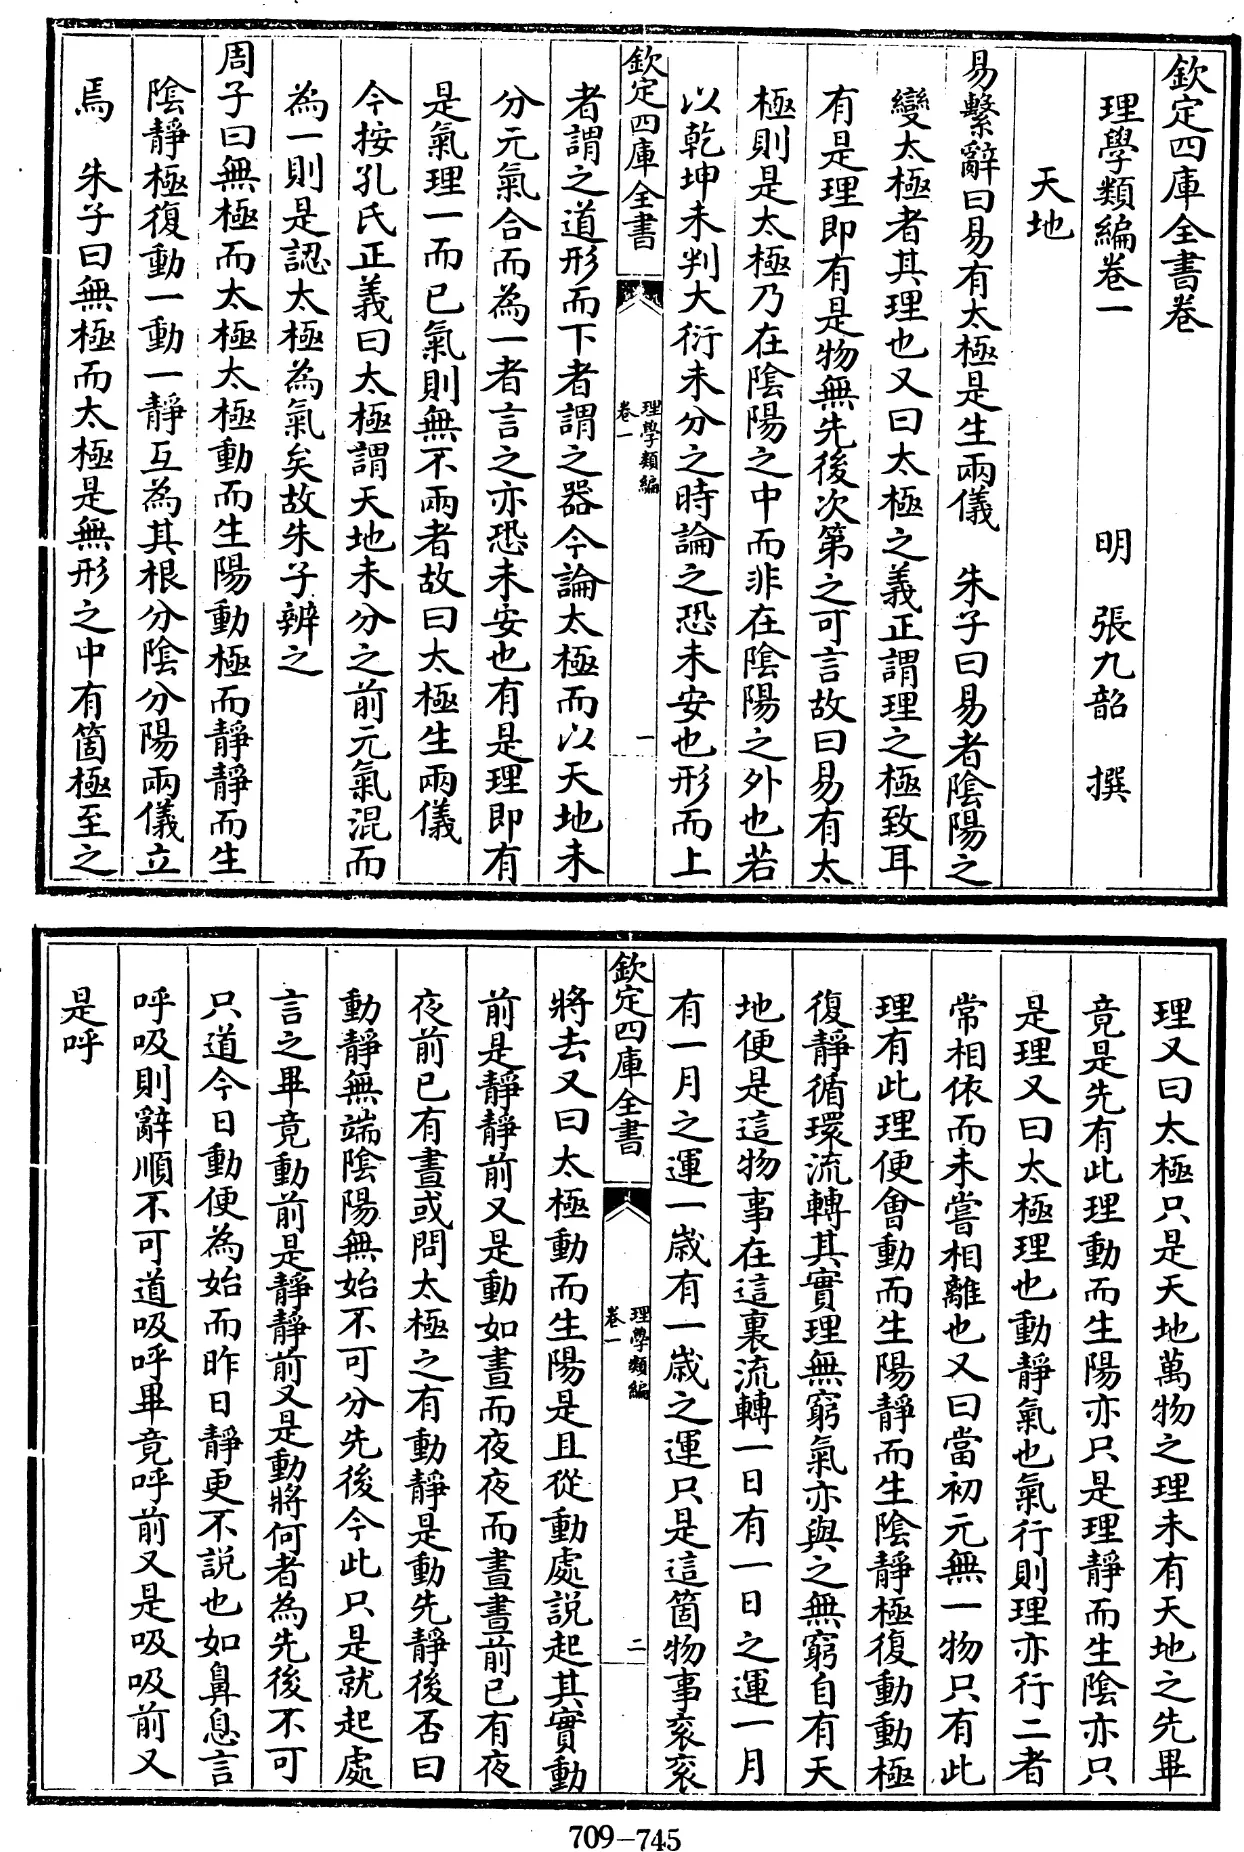 欽定四庫全書卷
理學類編卷一　明　張九韶　撰
天地
易繫辭曰易有太極是生兩儀　朱子曰易者陰陽之
變太極者其理也又曰太極之義正謂理之極致耳
有是理即有是物無先後次第之可言故曰易有太
極則是太極乃在陰陽之中而非在陰陽之外也若
以乾坤未判大衍未分之時論之恐未安也形而上
欽定四庫全書
理學類編
卷一
一
者謂之道形而下者謂之器今論太極而以天地未
分元氣合而為一者言之亦恐未安也有是理即有
是氣理一而已氣則無不兩者故曰太極生兩儀
今按孔氏正義曰太極謂天地未分之前元氣混而
為一則是認太極為氣矣故朱子辨之
周子曰無極而太極太極動而生陽動極而靜靜而生
陰靜極復動一動一靜互為其根分陰分陽兩儀立
焉　朱子曰無極而太極是無形之中有箇極至之
理又曰太極只是天地萬物之理未有天地之先畢
竟是先有此理動而生陽亦只是理靜而生陰亦只
是理又曰太極理也動靜氣也氣行則理亦行二者
常相依而未嘗相離也又曰當初元無一物只有此
理有此理便會動而生陽靜而生陰靜極復動動極
復靜循環流轉其實理無窮氣亦與之無窮自有天
地便是這物事在這裏流轉一日有一日之運一月
有一月之運一歲有一歲之運只是這箇物事衮衮
欽定四庫全書
理學類編
卷一
二
將去又曰太極動而生陽是且從動處説起其實動
前是靜靜前又是動如晝而夜夜而晝晝前已有夜
夜前已有晝或問太極之有動靜是動先靜後否曰
動靜無端陰陽無始不可分先後今此只是就起處
言之畢竟動前是靜靜前又是動將何者為先後不可
只道今日動便為始而昨日靜更不説也如鼻息言
呼吸則辭順不可道吸呼畢竟呼前又是吸吸前又
是呼
709-745